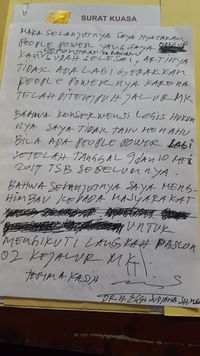 SURAT KUASA
MAKA SELANJUTNYA SAYA NYATAKAN
PEOPLE POWER YANG SAYA
KAMI SUDAH SELESAI, ARTINYA
TIDAK ADA LAGI GERAKAN
PEOPLE POWER NYA KARENA
TELAH DITEMPUH JALUR MK
BAHWA KONSEKWENSI LOGIS HUKUM
NYA SAYA TIDAK TAHU MENAHU
BILA ADA PEOPLE POWER LAGI
SETELAH TANGGAL 9 DAN 10 MEI
2019 TSB SEBELUMNYA.
BAHWA SELANJUTNYA SAYA MENG-
HIMBAU KEPADA MASYARAKAT
UNTUK
MENGIKUTI LANGKAH PASLON
02 KEJALUR MK.
TERIMA KASIH
DR. H. EGGI SUDJANA SH, M.Si